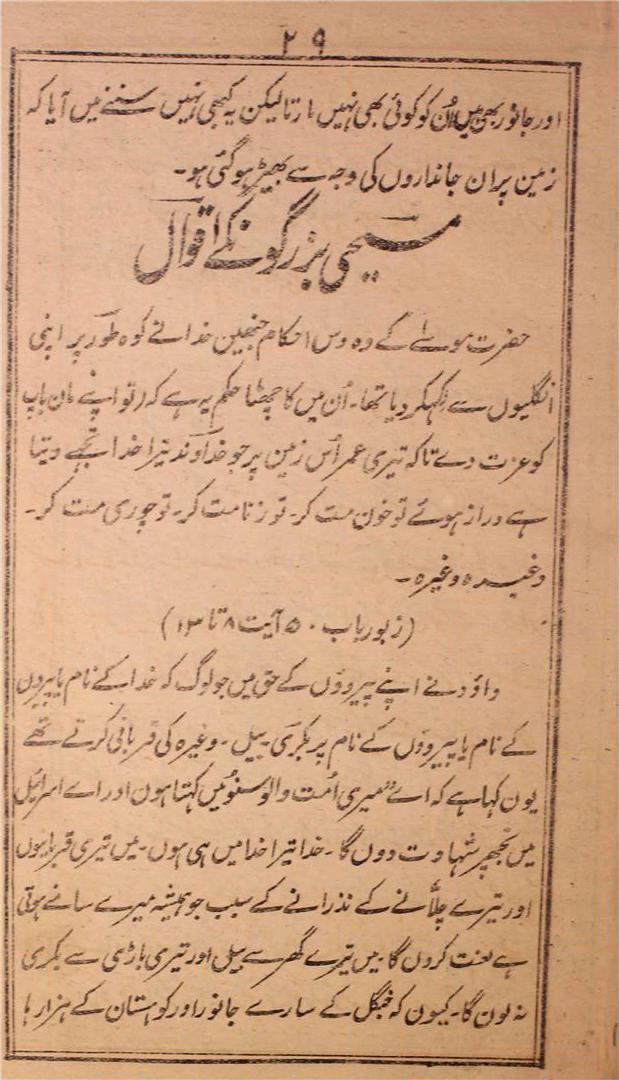 ۲۹
اور جانور بھی ہیں اُن کو کوئی بھی نہیں مارتا لیکن یہ کبھی نہیں سننے میں آیا کہ
زمین پر ان جانداروں کی وجہ سے بھیڑ ہو گئی ہو۔
مسیحی بزرگونکے اقوال
حضرت موسےٰ کے وہ دس احکام جنھیں خدا نے کوہ طور پر اپنی
انگلیوں سے لکہکر دیا تھا۔ اُن میں کا چھٹا حکم یہ ہے کہ (تو اپنے مان باپ
کو عزت دے تاکہ تیری عمر اُس زمین پر جو خداوند تیرا خدا تجھے دیتا
ہے دراز ہوئے تو خون مت کر۔ تو زنا مت کر۔ تو چوری مت کر۔
وغیرہ وغیرہ۔
(زبور باب ۵۰ آیت ۸ تا ۱۳)
داؤد نے اپنے پیروؤں کے حق میں جو لوگ کہ خدا کے نام یا پیرون
کے نام یا پیرووں کے نام پر بکری۔ بیل۔ وغیرہ کی قربانی کرتے تھے
یون کہا ہے کہ اے "میری اُمت والو سنو میں کہتا ہون اور اے اسرائیل
میں تجھپر شہادت دوں گا۔ خدا تیرا خدا میں ہی ہوں۔ میں تیری قربانیوں
اور تیرے چلّانے کے نذرانے کے سبب جو ہمیشہ میرے سامنے ہوتی
ہے لعنت کروں گا۔ میں تیرے گھر سے بیل اور تیری باڑی سے بکری
نہ لون گا۔ کیون کہ جنگل کے سارے جانور اور کوہستان کے ہزار ہا